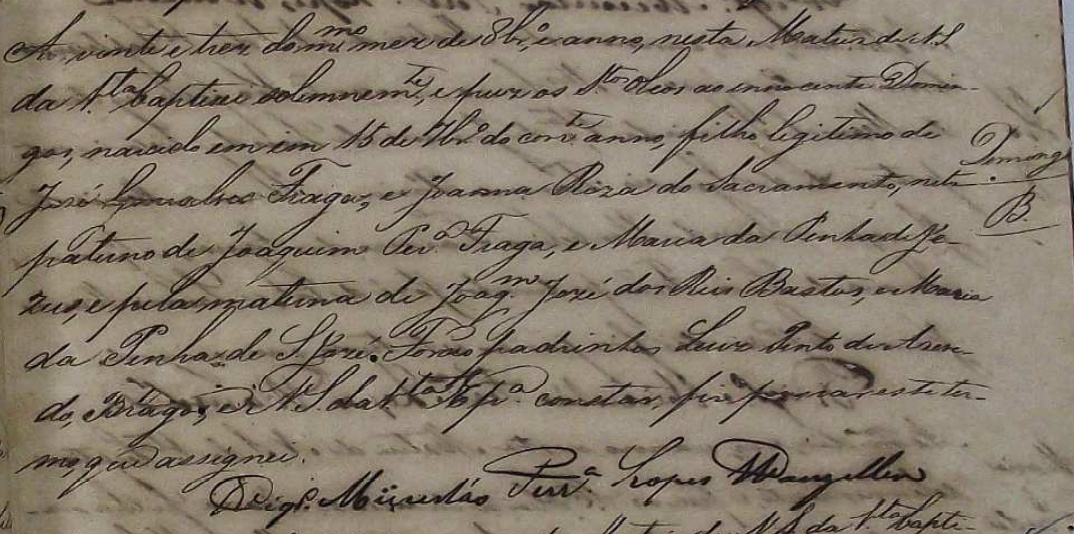 Ao vinte e trez do m.mo mez de 8br.o e anno, nesta Matriz de N. S.
da P.ta baptizei solemnem.te, e puz os S.tos Oleos ao innocente Domin-
gos, nascido em em 15 de 7br.o do corr.te anno, filho legitimo de
José Gonsalves Fraga, e Joanna Roza do Sacramento, neto
paterno de Joaquim Per.a Fraga, e Maria da Penha de Je-
zus, e pela materna de Joaq.m José dos Reis Bastos, e Maria
da Penha de S. José. Forão padrinhos Luiz Pinto de Azere-
do, Braga, e N. S. da P.ta E p.a constar, fiz formar este ter-
mo, que assignei.
Per.a Lopes Wanzeller
Domingos
B.
Matriz de N. S. da P.ta bapti-